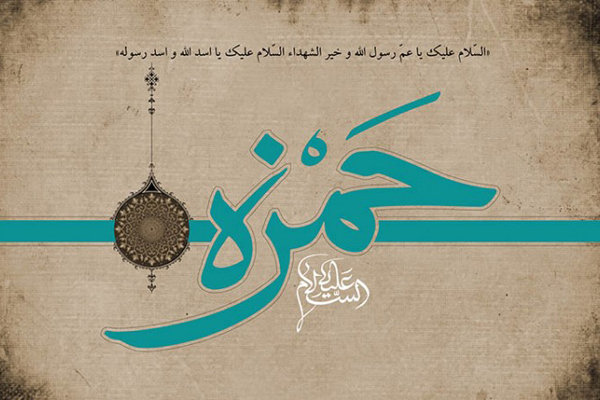 «السّلام علیک یا عمّ رسول الله و خیر الشهداء السّلام علیک یا اسد الله و اسد رسوله»
حمزه
علیه السلام